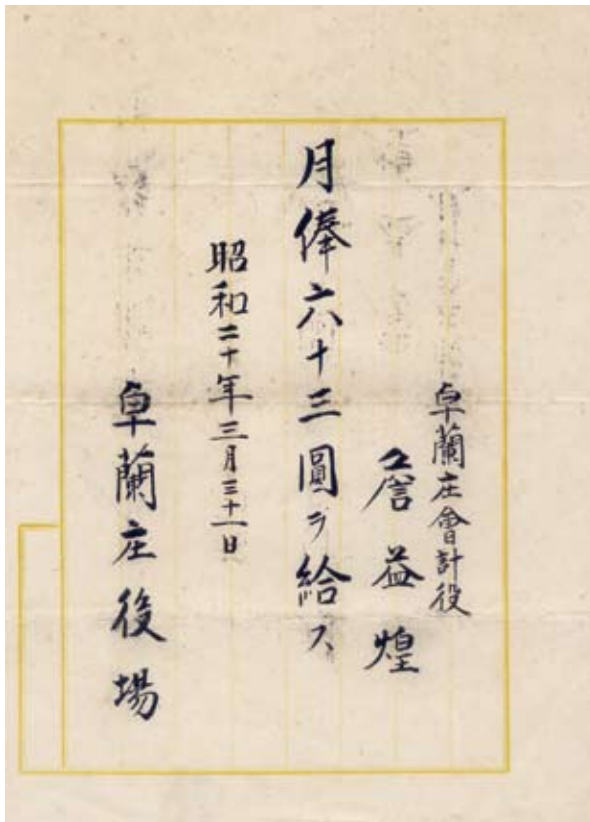 卓蘭庄會計役
詹益煌
月俸六十三圓ヲ給ス
昭和二十年三月三十一日
卓蘭庄役場